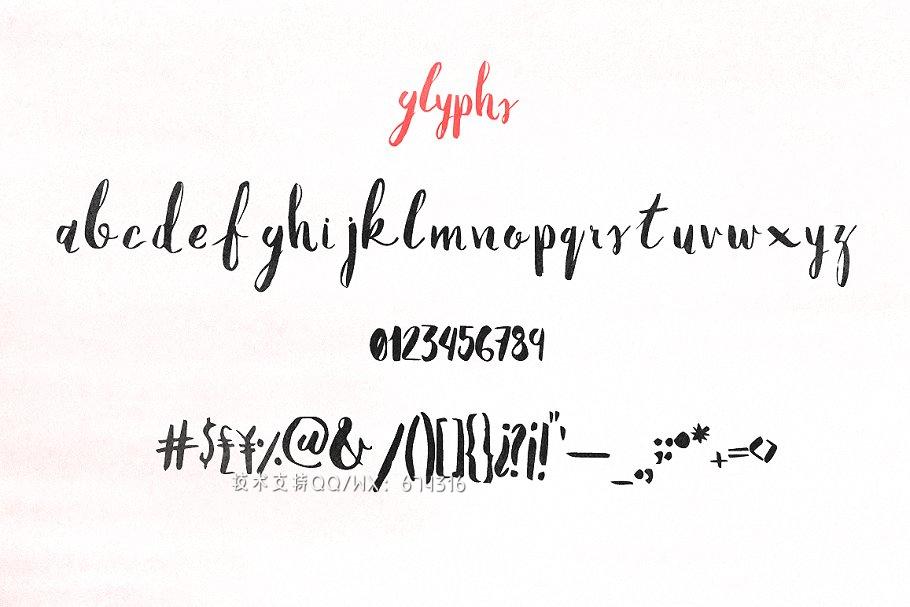 glyphs
abcdefghijklmnopqrstuvwxyz
0123456789
#$£¥%@&/()[]{}¿?¡!"'—_.,;:•*+=<>
技术支持QQ/WX：674316